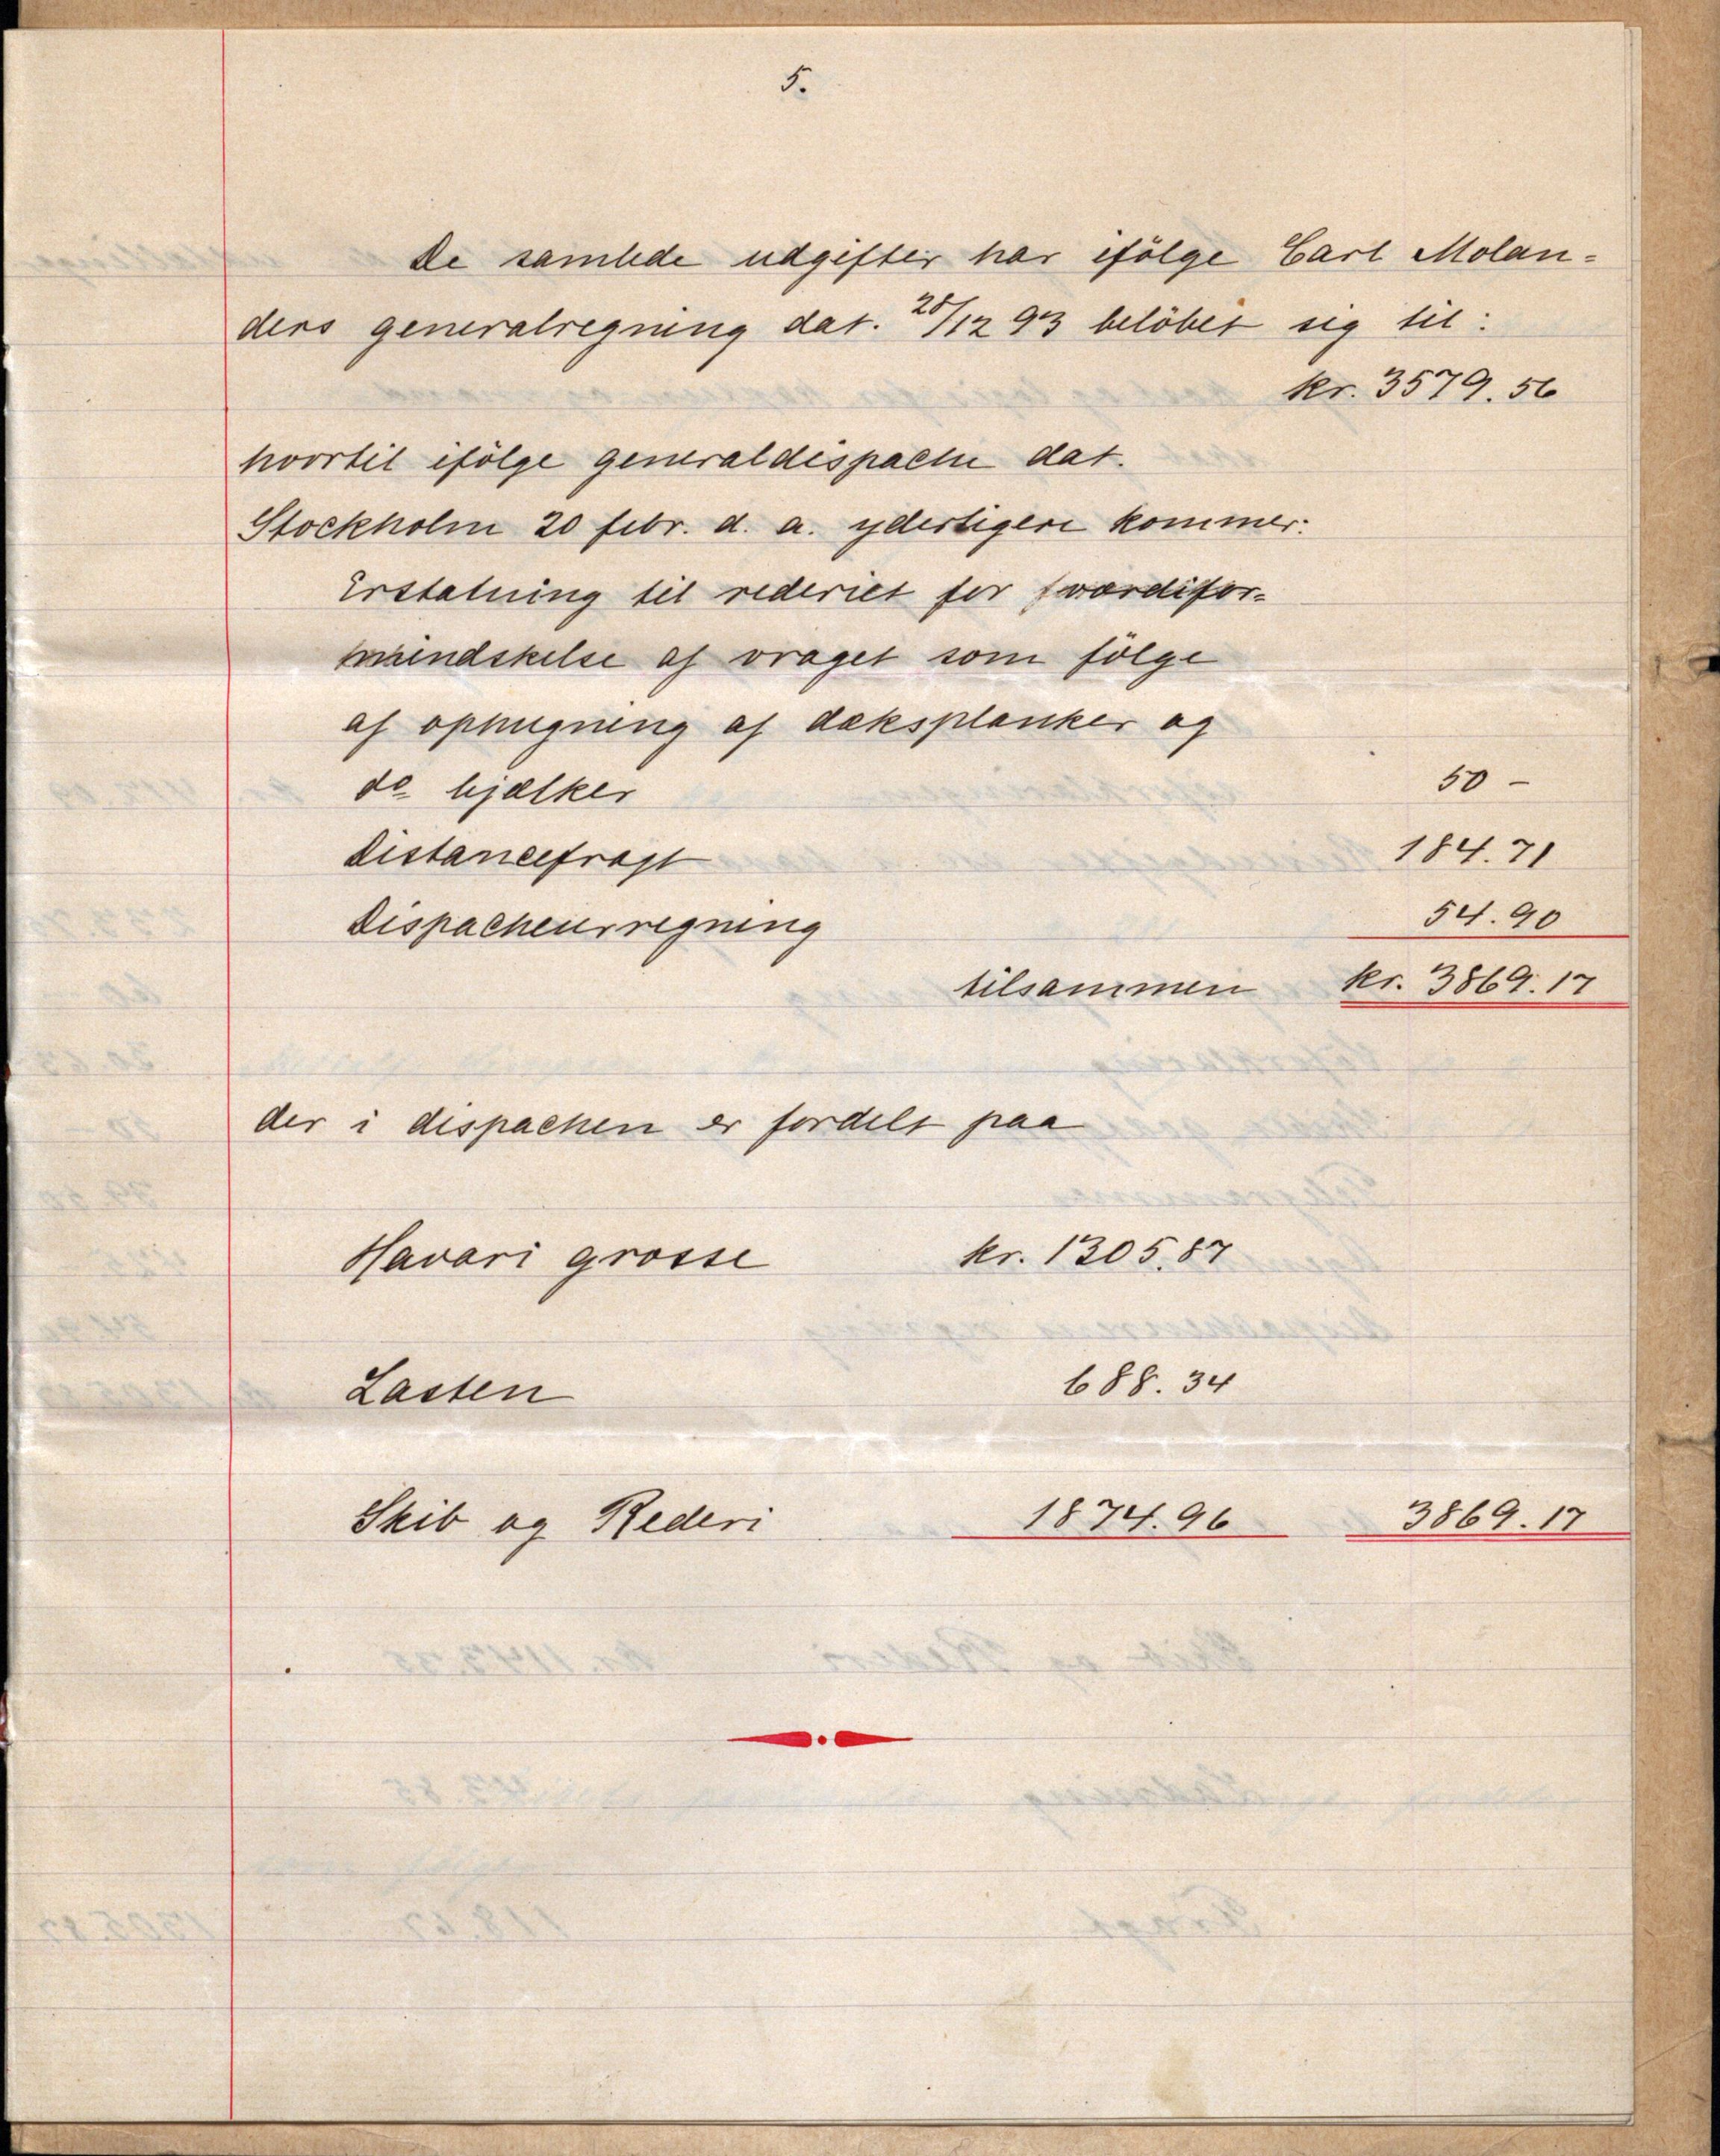 5.
De samlede udgifter har ifölge Carl Molan=
ders generalregning dat. 28/12 93 belöbet sig til:
kr. 3579.56
hvortil ifölge generaldispache dat.
Stockholm 20 febr. d. a. yderligere kommer:
Erstatning til rederiet for værdifor=
mindskelse af vraget som fölge
af ophugning af dæksplanker og
do bjælker 50 -
Distancefragt 184.71
Dispacheurregning 54.90
tilsammen kr. 3869.17
der i dispachen er fordelt paa
Havari grosse kr. 1305.87
Lasten 688.34
Skib og Rederi 1874.96 3869.17